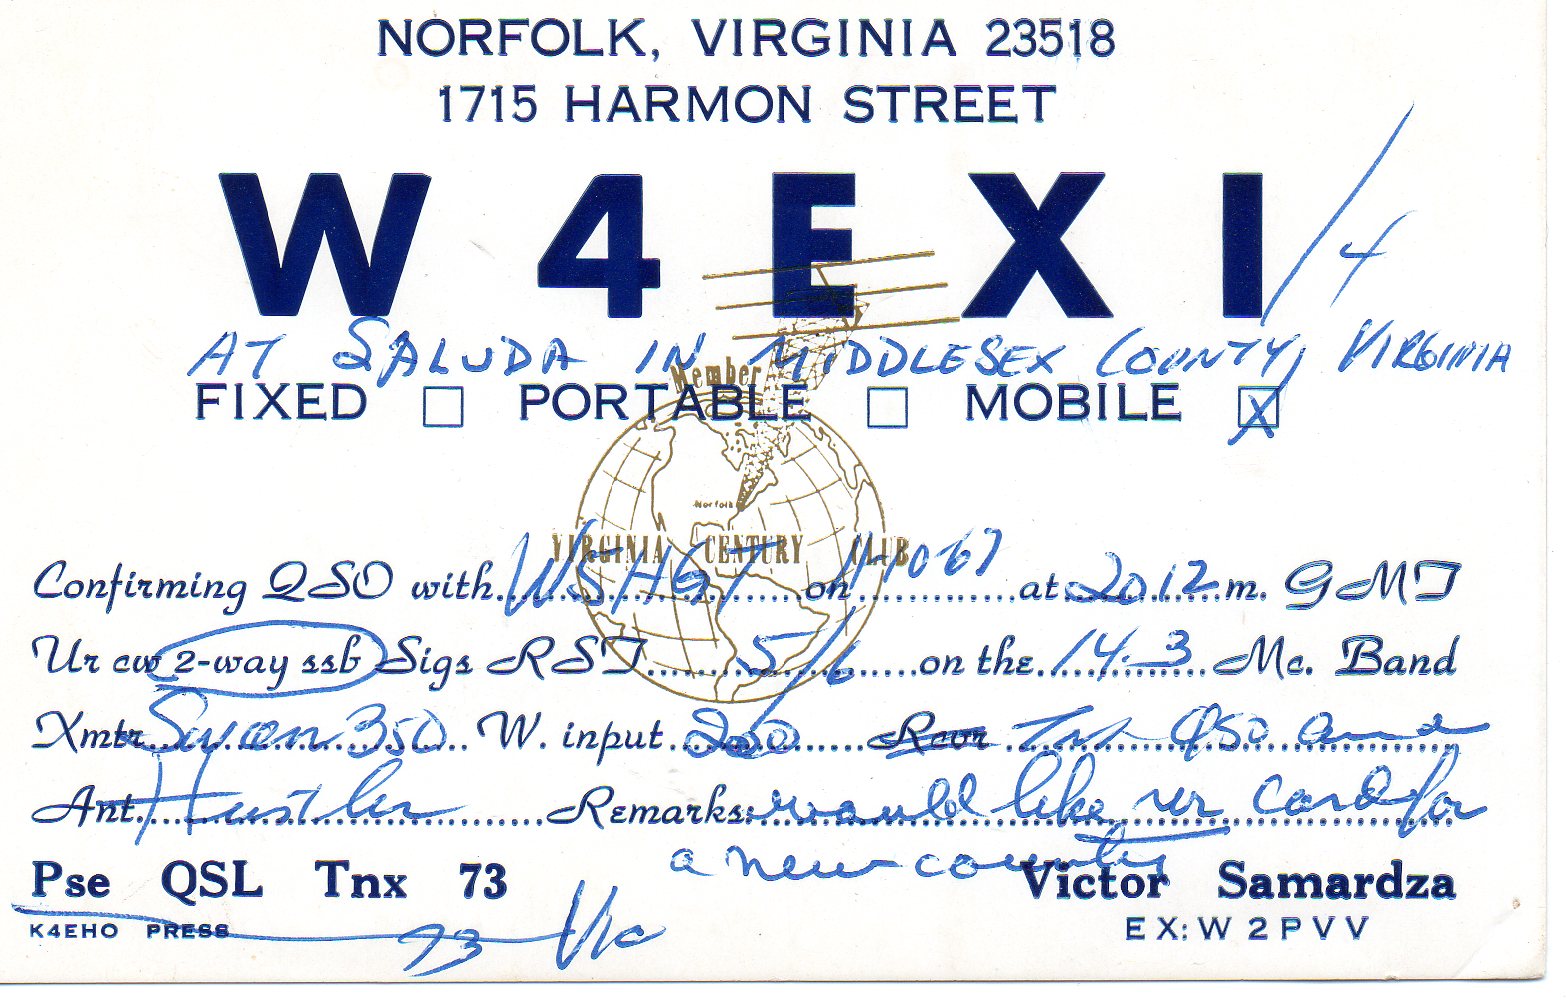 NORFOLK, VIRGINIA 23518
1715 HARMON STREET
W4EXI/4
AT SALUDA IN MIDDLESEX COUNTY, VIRGINIA
Member
FIXED PORTABLE MOBILE X
Norfolk
VIRGINIA CENTURY CLUB
Confirming QSO with W5HGT on 11-10-67 at 2012 m. GMT
Ur cw 2-way ssb Sigs RST 5/6 on the 14.3 Mc. Band
Xmtr Swan 350 W. input 200 Rcvr Tnx QSO and
Ant. Hustler Remarks: would like ur card for
a new county
Pse QSL Tnx 73 Victor Samardza
K4EHO PRESS 73 Vic EX: W2PVV